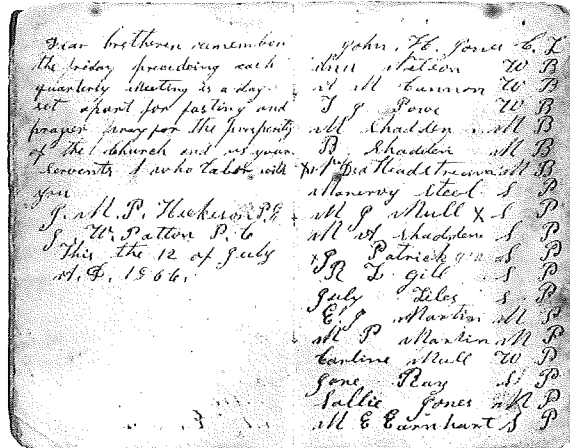 Dear bretheren remember
the friday preceeding each
quarterly meeting is a day
set apart for fasting and
prayer pray for the prosperity
of the Church and us your
servents who labor with
you
J. M. P. Hickerson P. E
J. W. Patton P. C
This the 12 of July
A. D. 1866.
John H. Jones C. L
Ann Nelson W B
M Cannon W B
T J Powe W B
M Shadden M B
B Shadden M B
Headstream M B
Manervy Steel S P
M J Mull X S P
M A Shadden S P
Patrick S P
R L Gill S P
July Liles S P
E. J Martin M P
M P Martin M P
Carline Mull W P
Jane Ray S P
Sallie Jones M P
M E Earnhart S P